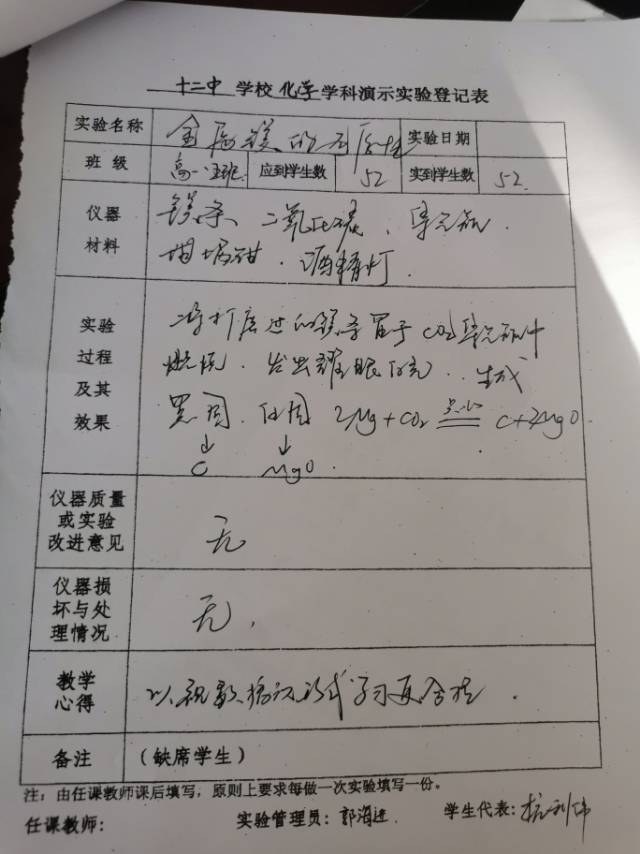 十二中 学校 化学 学科演示实验登记表
实验名称 金属镁的还原性 实验日期
班 级 高一 班 应到学生数 52 实到学生数 52.
仪器材料
镁条、二氧化碳、集气瓶、
坩埚钳、酒精灯.
实验过程及其效果
将打磨过的镁条置于CO2集气瓶中
燃烧.发出耀眼白光..生成
黑固.白固 2Mg+CO2 点燃 C+2MgO.
↓ ↓
C MgO.
仪器质量或实验改进意见 无
仪器损坏与处理情况 无.
教学心得 以视频 形式学习
备注 (缺席学生)
注:由任课教师课后填写,原则上要求每做一次实验填写一份。
任课教师: 实验管理员: 郭海 学生代表: